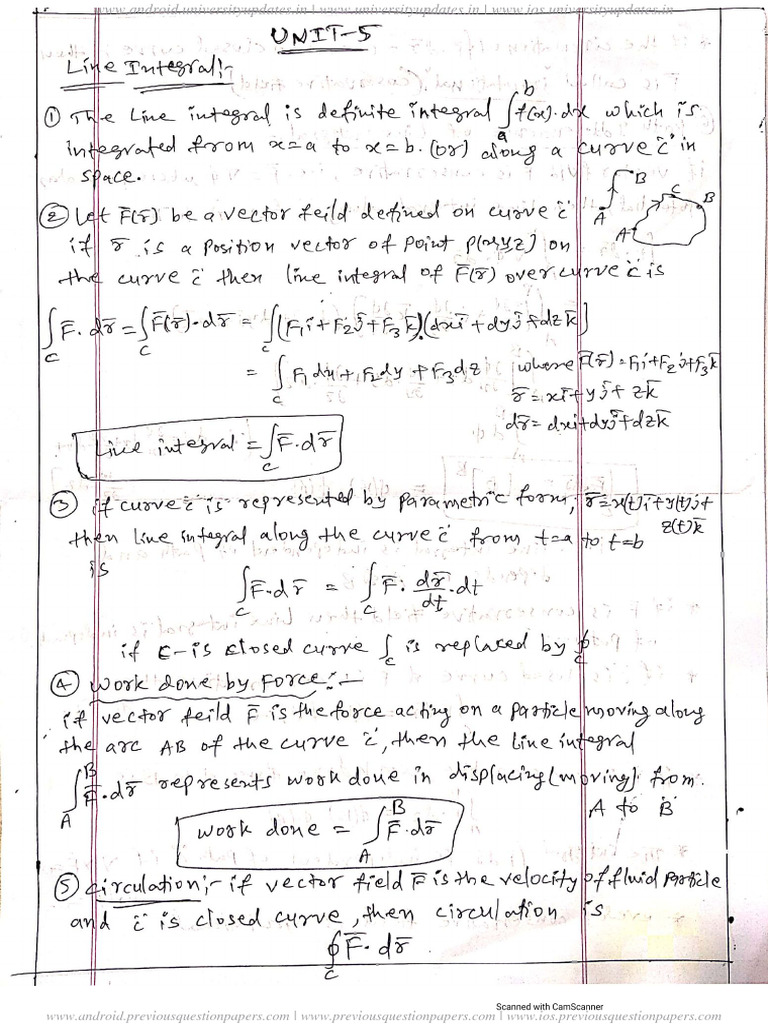 www.android.universityupdates.in | www.universityupdates.in | www.ios.universityupdates.in
UNIT-5
Line Integral:-
① The Line integral is definite integral ∫ₐᵇ f(x).dx which is
integrated from x=a to x=b. (or) along a curve 'c' in
space.
② Let F̄(r̄) be a vector feild defined on curve 'c'
if r̄ is a position vector of point p(xyz) on
the curve 'c' then line integral of F̄(r̄) over curve 'c' is
A B
A C B
∫_C F̄.dr̄ = ∫_C F̄(r̄).dr̄ = ∫_C (F₁i+F₂j̄+F₃k̄).(dxī+dyj̄+dzk̄)
= ∫_C F₁dx+F₂dy+F₃dz
where F̄(r̄)=F₁i+F₂j+F₃k̄
r̄=xī+yj̄+zk̄
dr̄=dxi+dyj̄+dzk̄
Line integral = ∫_C F̄.dr̄
③ if curve 'c' is represented by parametric form, r̄=x(t)ī+y(t)j+
z(t)k̄
then line integral along the curve 'c' from t=a to t=b
is
∫_C F̄.dr̄ = ∫_C F̄.dr̄/dt.dt
if C-is closed curve ∫_C is replaced by ∮_C
④ Work done by Force:-
if vector feild F̄ is the force acting on a particle moving along
the arc AB of the curve 'c', then the line integral
∫_A^B F̄.dr̄ represents work done in displacing(moving) from
A to B
work done = ∫_A^B F̄.dr̄
⑤ circulation:- if vector field F̄ is the velocity of fluid particle
and 'c' is closed curve, then circulation is
∮_C F̄.dr̄.
Scanned with CamScanner
www.android.previousquestionpapers.com | www.previousquestionpapers.com | www.ios.previousquestionpapers.com